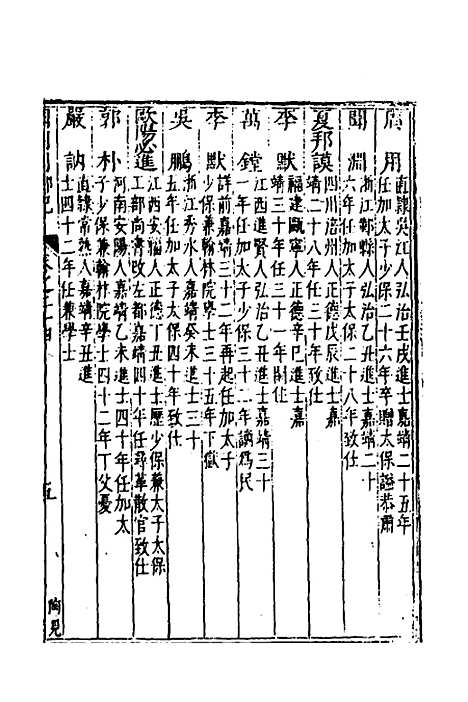 周用
直隸吳江人弘治壬戌進士嘉靖二十五年
任加太子少保二十六年卒贈太保謚恭肅
聞淵
浙江鄞縣人弘治乙丑進士嘉靖二十
六年任加太子太保二十八年致仕
夏邦謨
四川涪州人正德戊辰進士嘉
靖二十八年任三十年致仕
李默
福建甌寧人正德辛巳進士嘉
靖三十年任三十一年閒住
萬鏜
江西進賢人弘治乙丑進士嘉靖三十
一年任加太子少保三十二年謫為民
李默
詳前嘉靖三十二年再起任加太子
少保兼翰林院學士三十五年下獄
吳鵬
浙江秀水人嘉靖癸未進士三十
五年任加太子太保四十年致仕
歐陽必進
江西安福人正德丁丑進士歷少保兼太子太保
工部尚書改左都嘉靖四十年任尋革散官致仕
郭朴
河南安陽人嘉靖乙未進士四十年任加太
子少保兼翰林院學士四十二年丁父憂
嚴訥
直隸常熟人嘉靖辛丑進
士四十二年任兼學士
卷之二十四
五
陶見